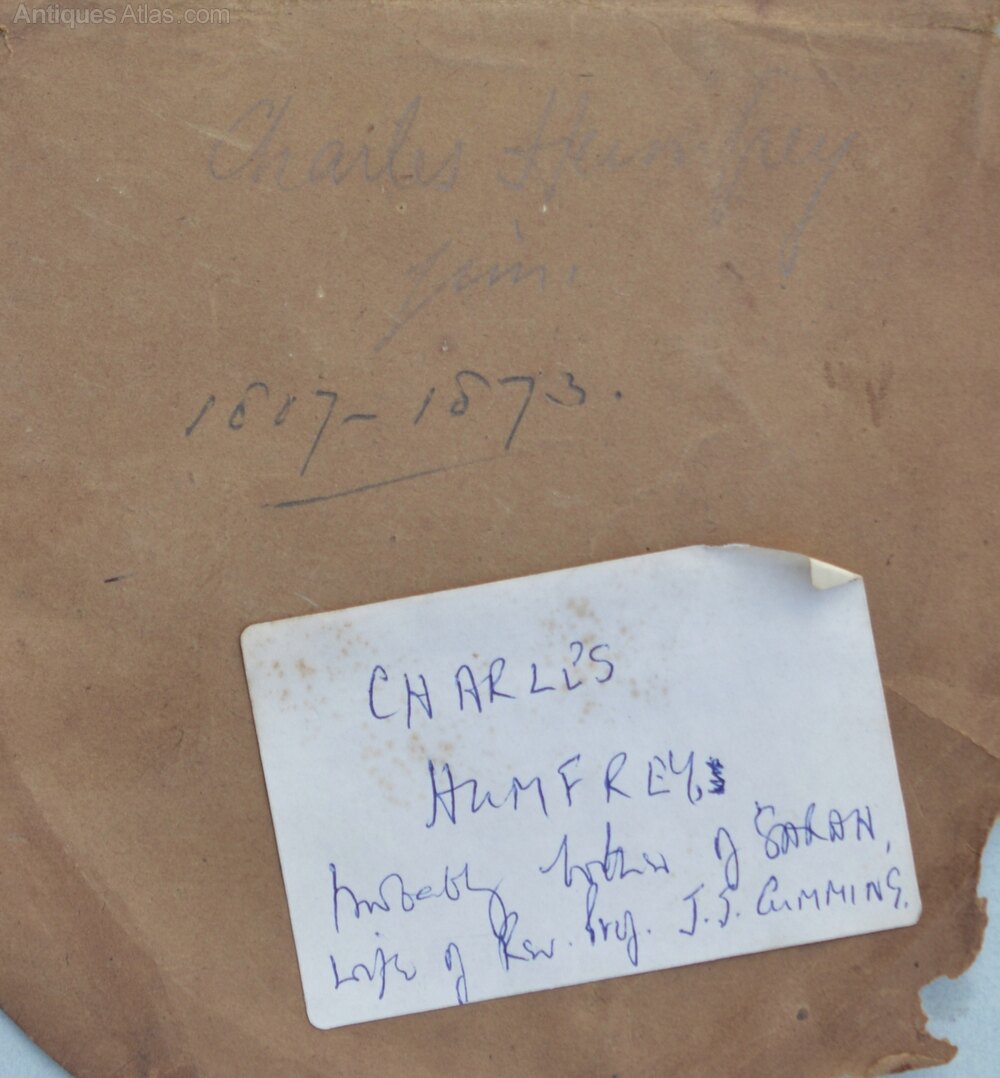 AntiquesAtlas.com
Charles Humfrey
jun.
1817-1873.
CHARLES
HUMFREY
probably brother of SARAH,
wife of Rev. Prof. J.J. CUMMING.